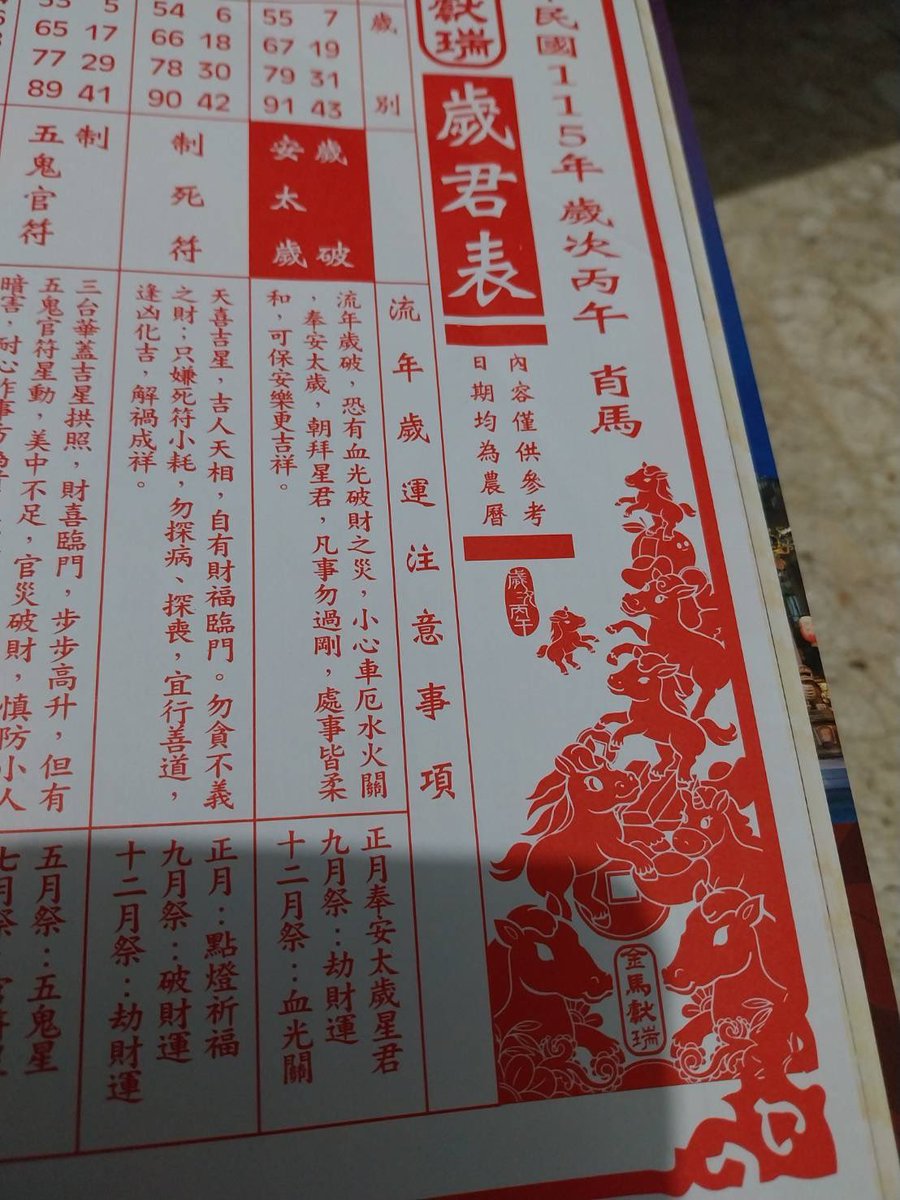 民國115年 歲次丙午 肖馬
獻瑞
歲君表
內容僅供參考
日期均為農曆
歲次丙午
金馬獻瑞
歲別
流年歲運注意事項
55 7
67 19
79 31
91 43
歲破
安太歲
流年歲破，恐有血光破財之災，小心車厄水火關
，奉安太歲，朝拜星君，凡事勿過剛，處事皆柔
和，可保安樂更吉祥。
正月奉安太歲星君
九月祭：劫財運
十二月祭：血光關
54 6
66 18
78 30
90 42
制死符
天喜吉星，吉人天相，自有財福臨門。勿貪不義
之財；只嫌死符小耗，勿探病、探喪，宜行善道，
逢凶化吉，解禍成祥。
正月：點燈祈福
九月祭：破財運
十二月祭：劫財運
53 5
65 17
77 29
89 41
制
五鬼官符
三台華蓋吉星拱照，財喜臨門，步步高升，但有
五鬼官符星動，美中不足，官災破財，慎防小人
暗害，耐心作事方
五月祭：五鬼星
七月祭：官符星